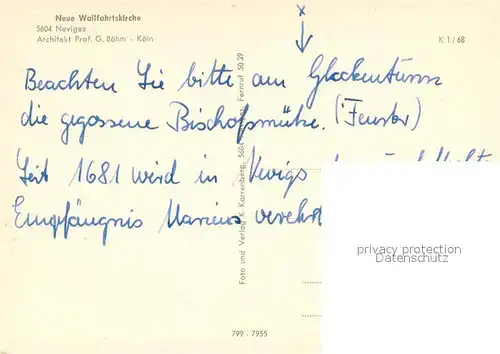 Neue Wallfahrtskirche
5604 Neviges
Architekt Prof. G. Böhm - Köln
K 1 / 68
x
Beachten Sie bitte am Glockenturm
die gegossene Bischofsmütze. (Fenster)
Seit 1681 wird in Neviges
Empfängnis Mariens verehrt
Foto und Verlag K. Karrenberg, 5604 Fernruf 50 39
799 - 7955
privacy protection
Datenschutz